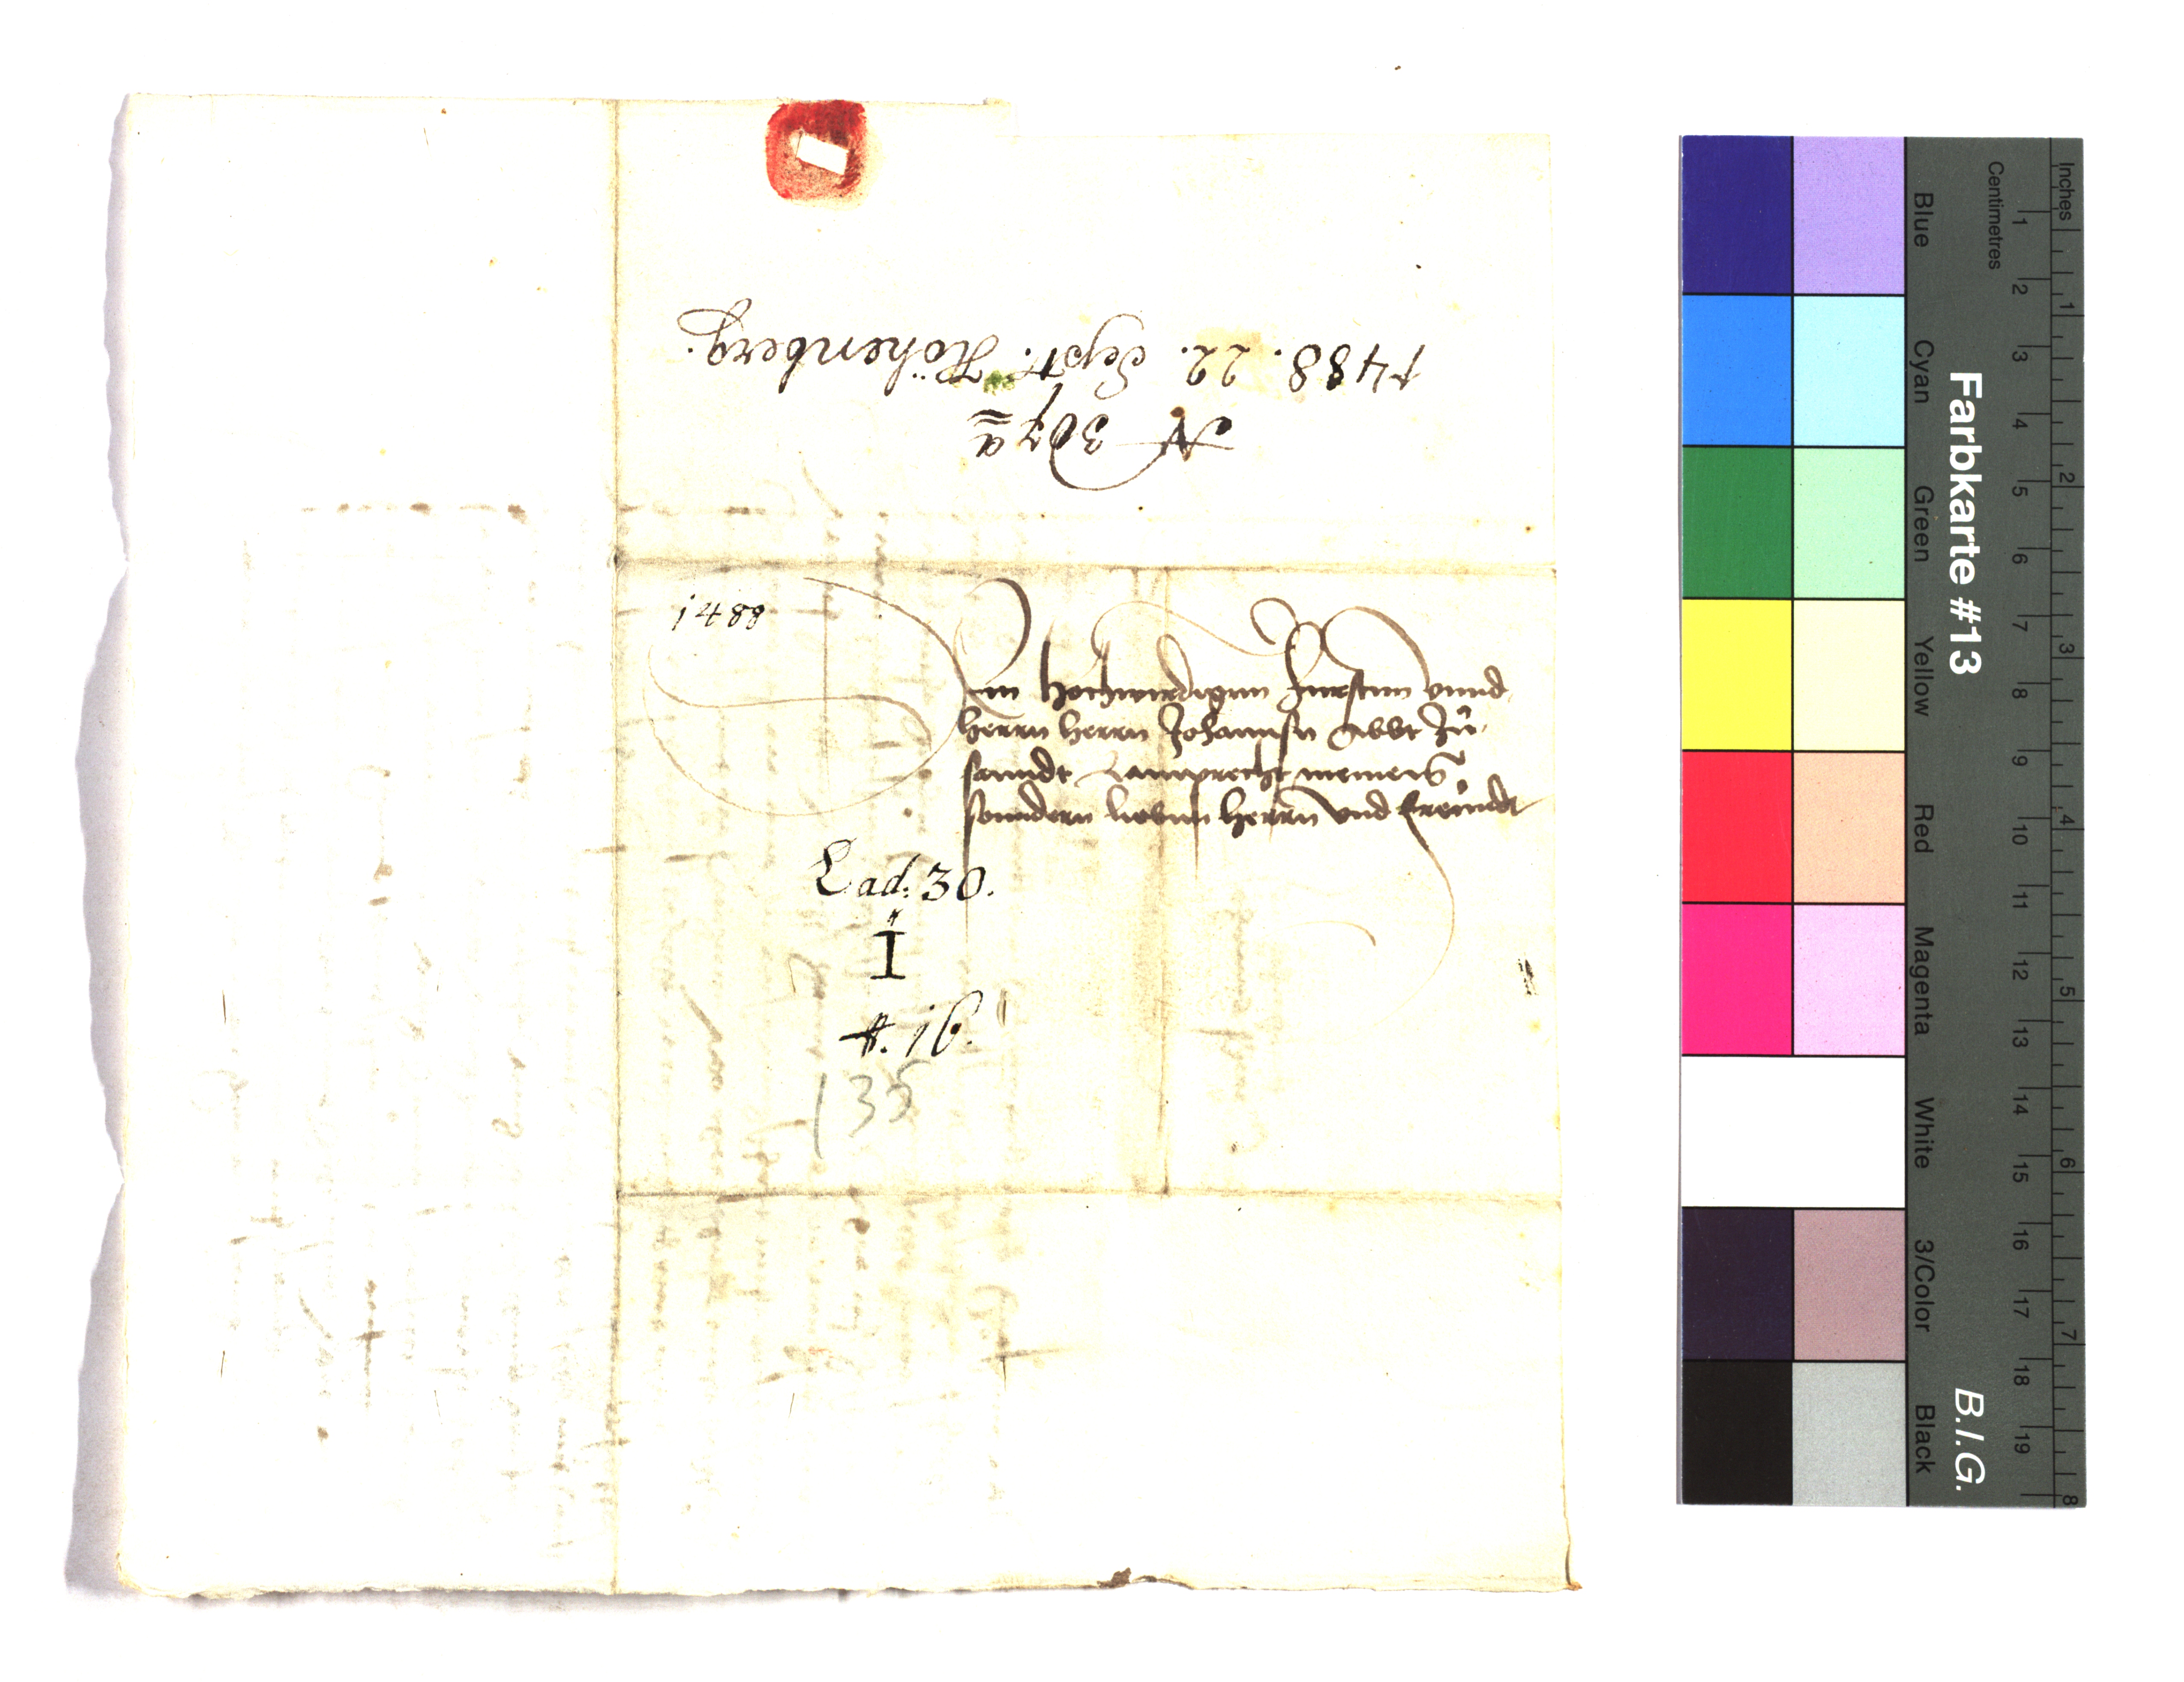 1488. 22. Sept. Höhenberg.
N 307 a
1488
Dem hochwirdigenn Furstenn vnnd
herrn herrn Johannsn Abbt Zů
sanndt Lamprecht meinem
sonndern liebenn herrn vnd freundt
Lad: 30.
I
#. 16.
135
Farbkarte #13
B.I.G.
Inches
Centimetres
1 2 3 4 5 6 7 8
1 2 3 4 5 6 7 8 9 10 11 12 13 14 15 16 17 18 19
Blue
Cyan
Green
Yellow
Red
Magenta
White
3/Color
Black